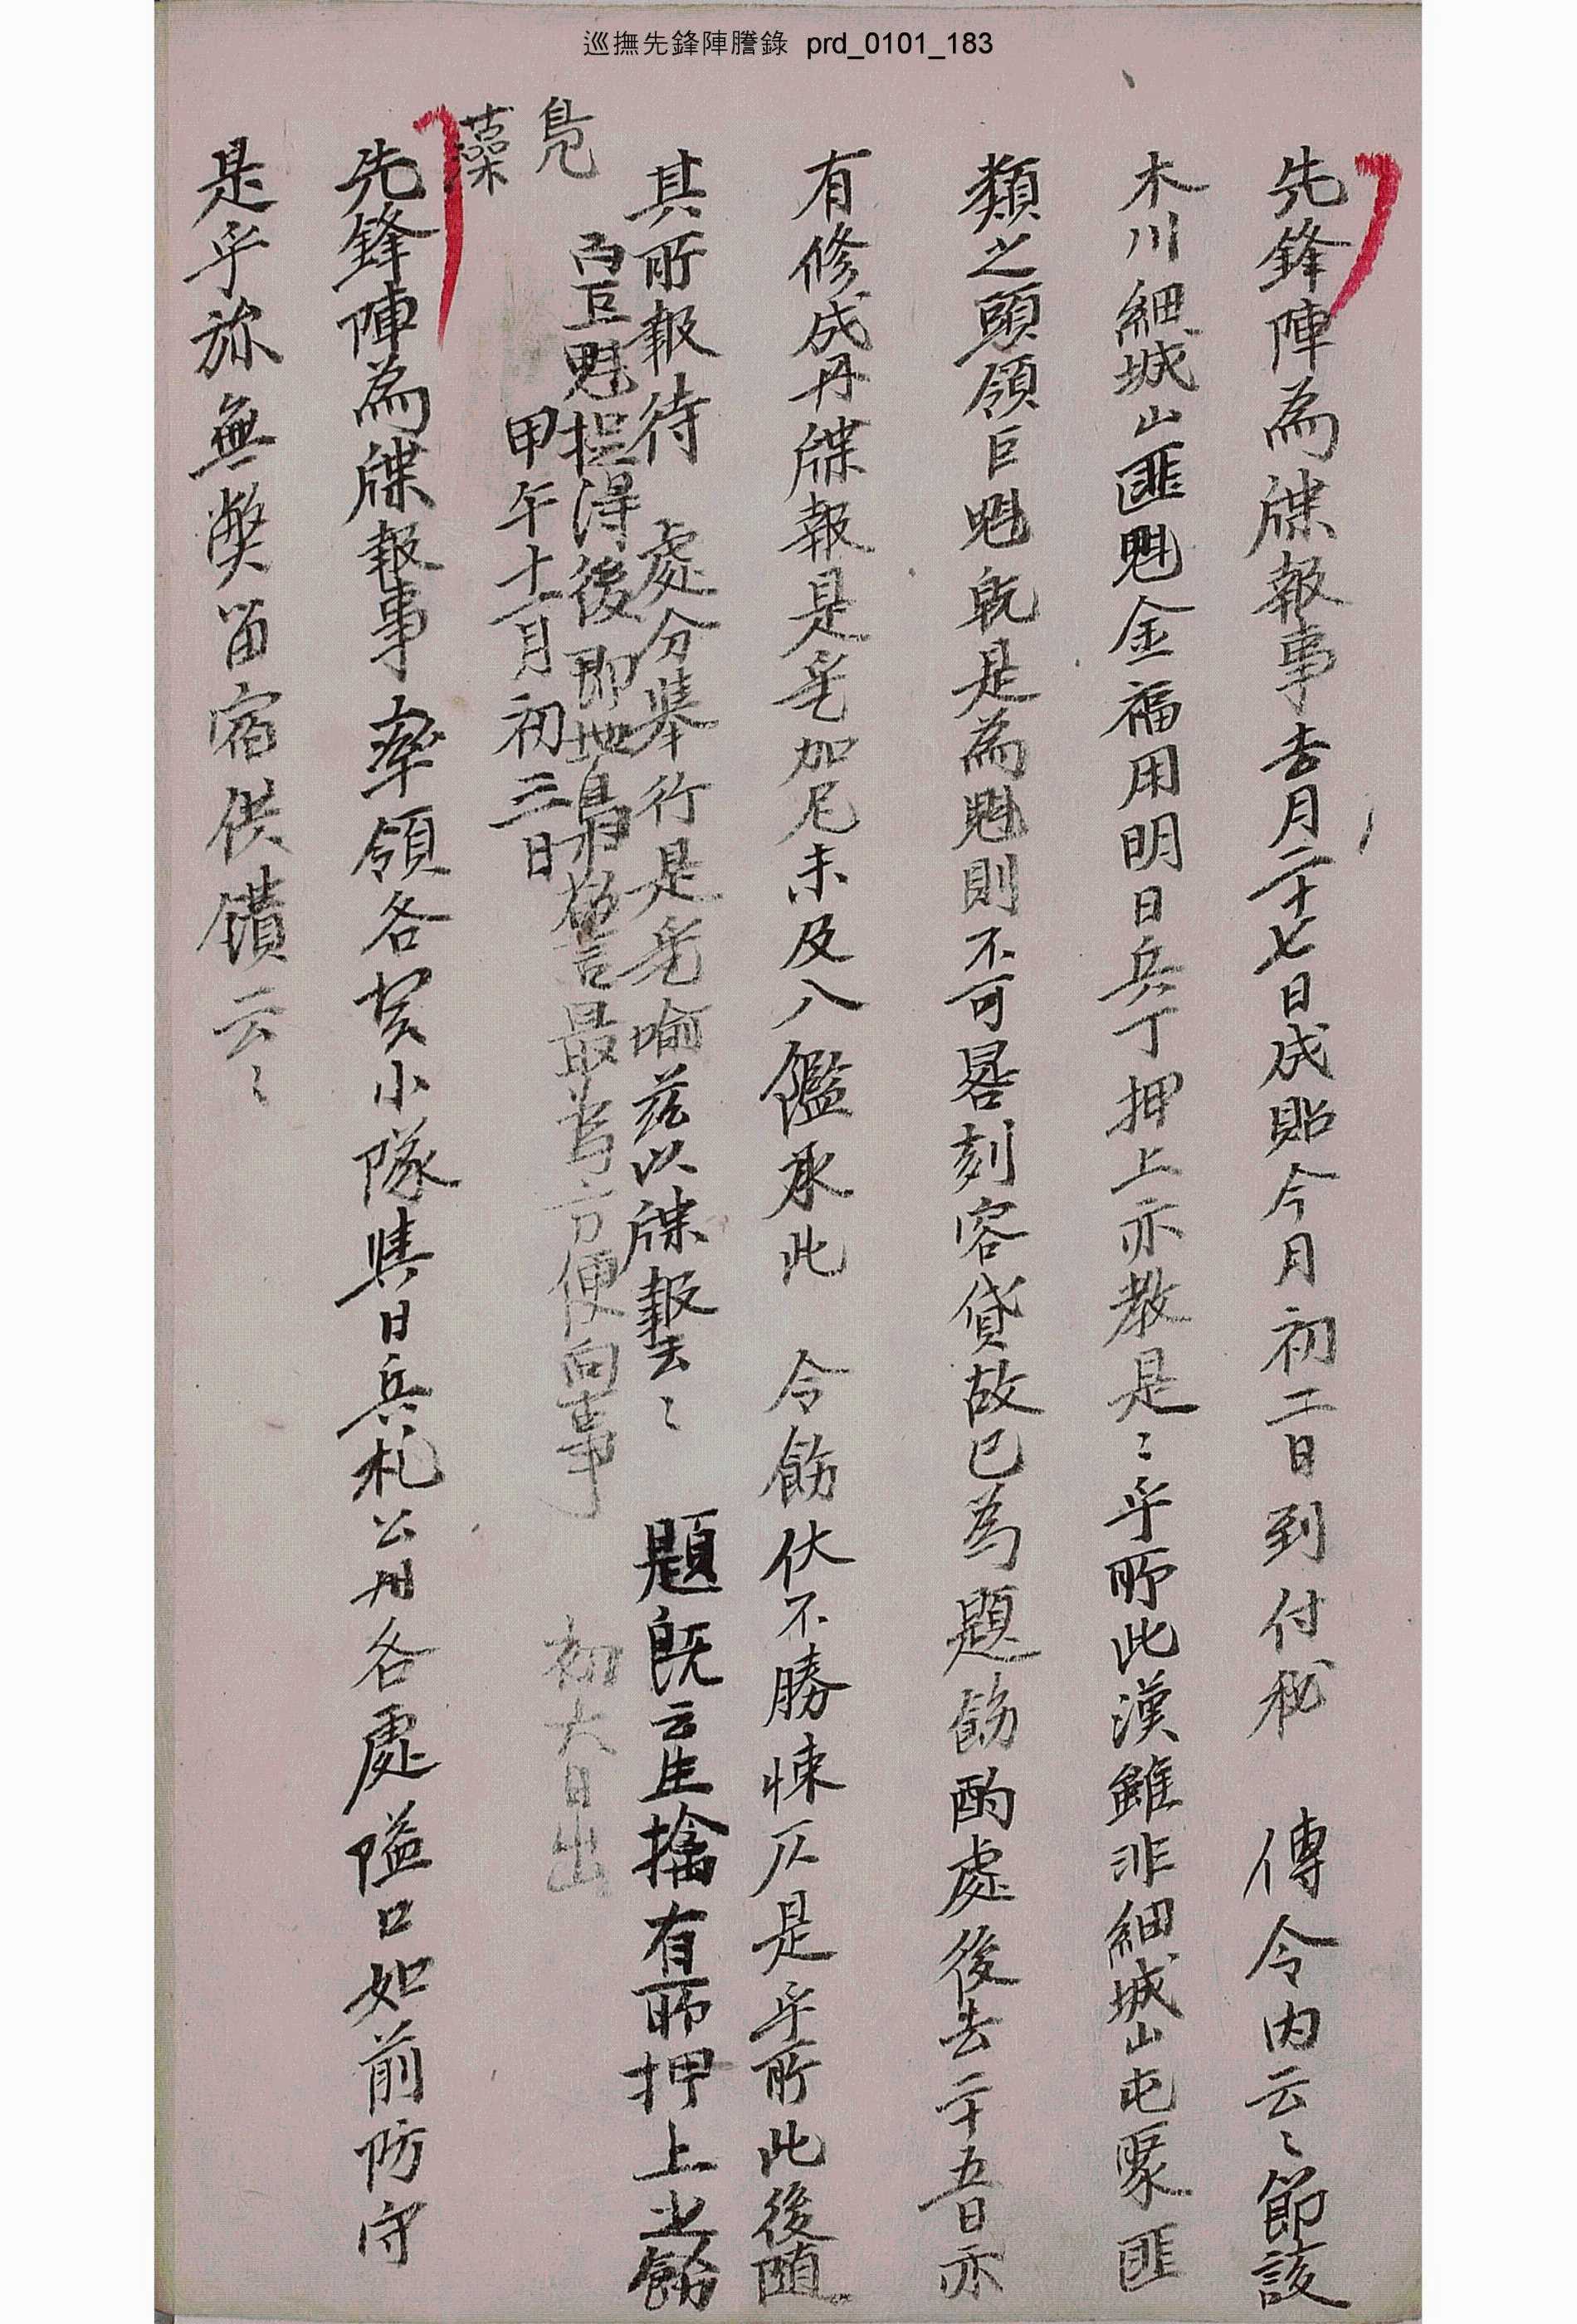 巡撫先鋒陣謄錄 prd_0101_183
先鋒陣爲牒報事去月二十七日成貼今月初二日到付秘 傳令內云〻節該
木川細城山匪魁金福用明日兵丁押上亦敎是〻乎所此漢雖非細城山屯聚匪
類之頭領巨魁旣是爲魁則不可晷刻容貸故已爲題飭酌處後去二十五日亦
有修成冊牒報是乎加尼未及入鑑承此 令飭伏不勝悚仄是乎所此後隨
其所報待 處分擧行是乎喩玆以牒報云〻 題旣云生擒有所押上之飭
而巨魁捉得後卽地梟警最爲方便向事 初六日出
甲午十一月初三日
鳧
藻
先鋒陣爲牒報事率領各窠小隊與日兵札公州各處隘口如前防守
是乎旀無弊留宿供饋云〻